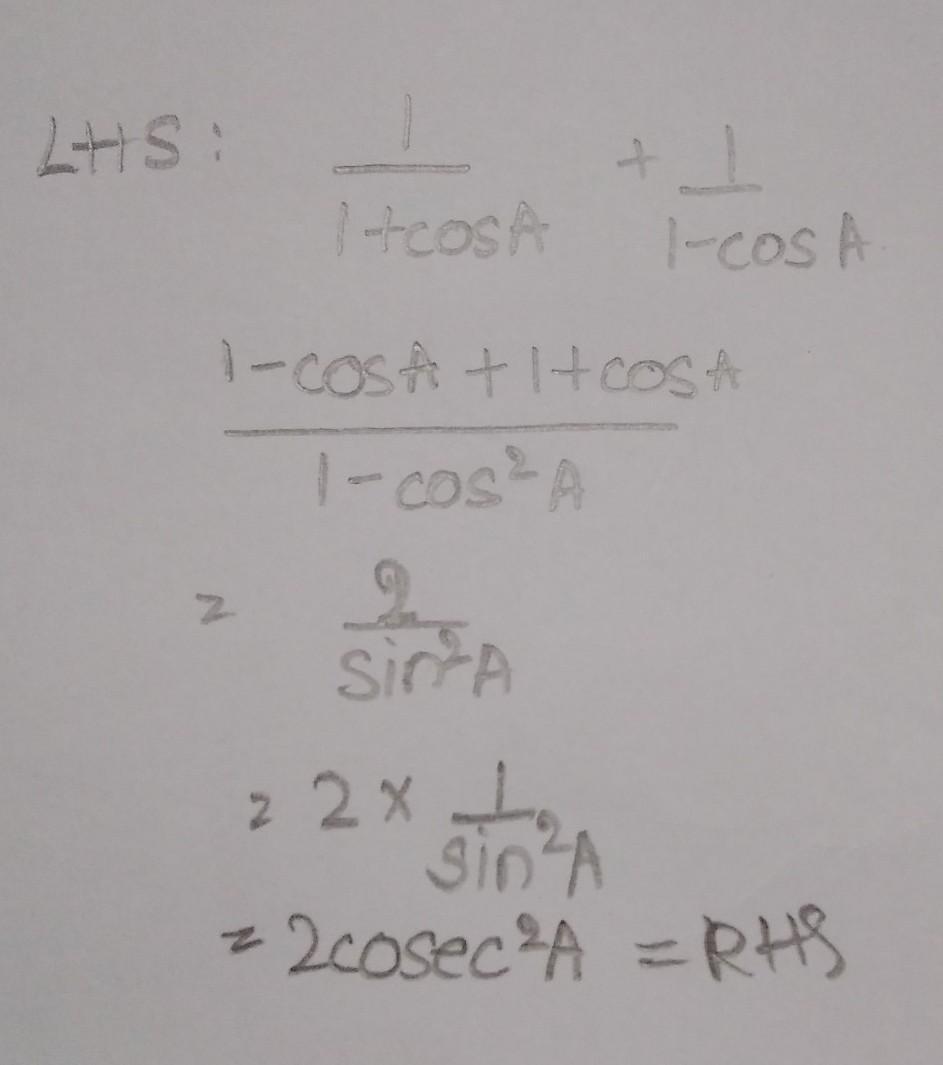 LHS: 1/1+cosA + 1/1-cosA
1-cosA + 1+cosA
1-cos²A
= 2/sin²A
= 2 x 1/sin²A
= 2cosec²A = RHS